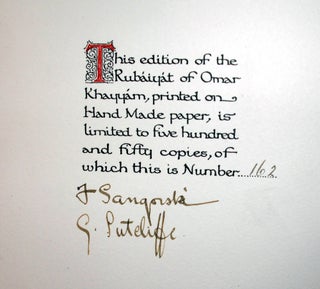 This edition of the
Rubáiyát of Omar
Khayyám, printed on
Hand Made paper, is
limited to five hundred
and fifty copies, of
which this is Number...162
F Sangorski
G. Sutcliffe.